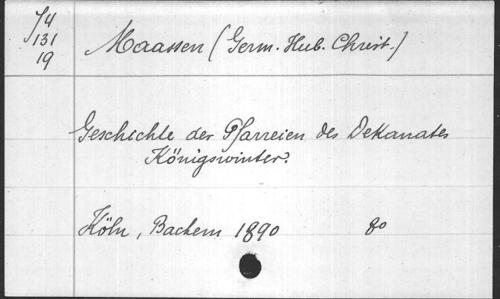 J4
131
19
Maassen (Germ. Hub. Christ.)
Geschichte der Pfarreien des Dekanates
Königswinter.
Köln, Bachem 1890 80